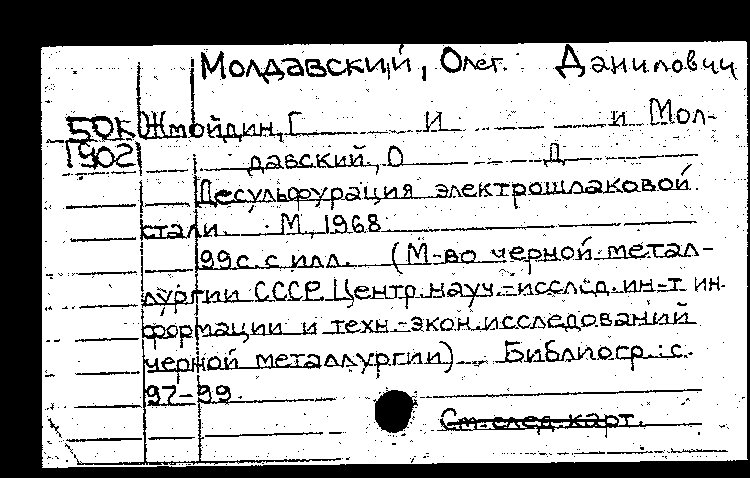 Молдавский, Олег. Данилович
50К Жмойдин, Г И и Мол-
1902 давский, О Д
Десульфурация электрошлаковой
стали. М, 1968
99с. с илл. (М-во черной метал-
лургии СССР. Центр. науч.-исслед. ин-т ин.
формации и техн.-экон. исследований
черной металлургии) Библиогр.: с.
97-99.
См. след. карт.